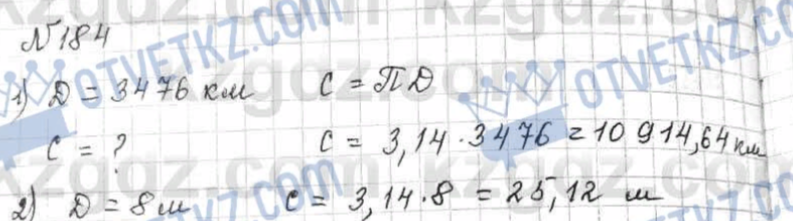 №184
1) D = 3476 км    C = ПD
C = ?    C = 3,14 · 3476 = 10 914,64 км
2) D = 8 м    C = 3,14 · 8 = 25,12 м
OTVETKZ.COM
kzgdz.com